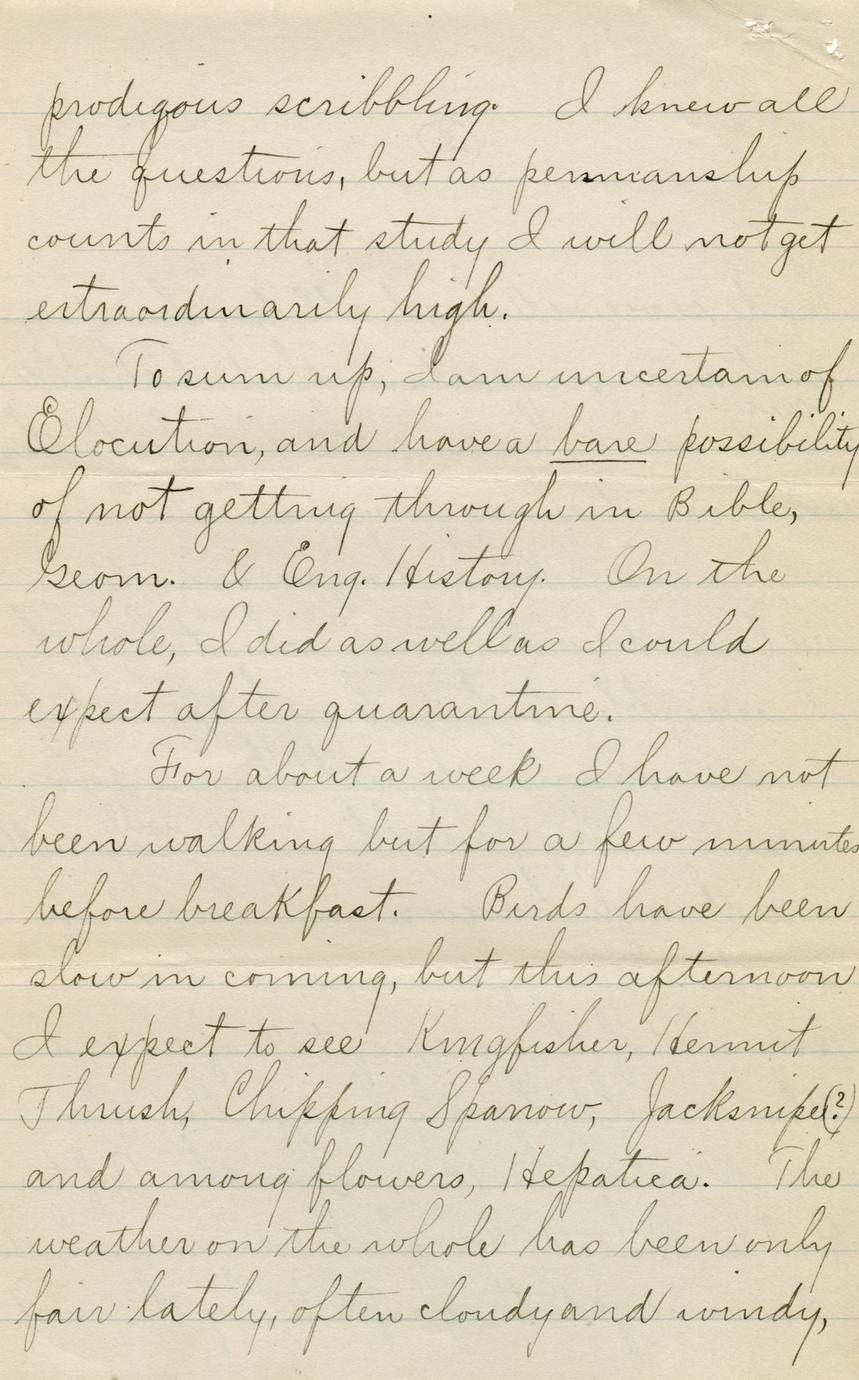 prodigous scribbling. I knew all
the questions, but as penmanship
counts in that study I will not get
extraordinarily high.
To sum up, I am uncertain of
Elocution, and have a bare possibility
of not getting through in Bible,
Geom. & Eng. History. On the
whole, I did as well as I could
expect after quarantine.
For about a week I have not
been walking but for a few minutes
before breakfast. Birds have been
slow in coming, but this afternoon
I expect to see Kingfisher, Hermit
Thrush, Chipping Sparrow, Jacksnipe(?)
and among flowers, Hepatica. The
weather on the whole has been only
fair lately, often cloudy and windy,